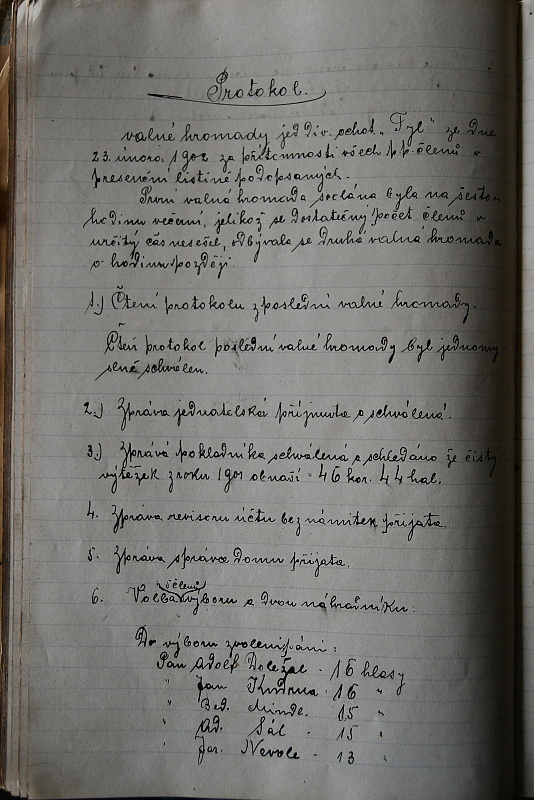 Protokol.
valné hromady jed div. ochot. „Tyl" ze dne
23. února 1902 za přítomnosti všech p.p. členů v
presenční listině podepsaných.
První valná hromada svolána byla na šestou
hodinu večerní, jelikož se dostatečný počet členů v
určitý čas nesešel, odbývala se druhá valná hromada
o hodinu později.
1.) Čtení protokolu z poslední valné hromady.
Čtený protokol poslední valné hromady byl jednomy-
slně schválen.
2.) Zpráva jednatelská přijmuta a schválená.
3.) Zpráva pokladníka schválená a shledáno že čistý
výtěžek z roku 1901 obnáší 46 kor. 44 hal.
4. Zpráva revisoru účtu bez námitek přijata.
5. Zpráva správce domu přijata.
6. Volba členů výboru a dvou náhradníku:
Do výboru zvoleni páni:
Pan Adolf Doležal - 16 hlasy
" Jan - 16 "
" Bed. - 15 "
" Ad. Sál - 15 "
" Jar. Nevole - 13 "